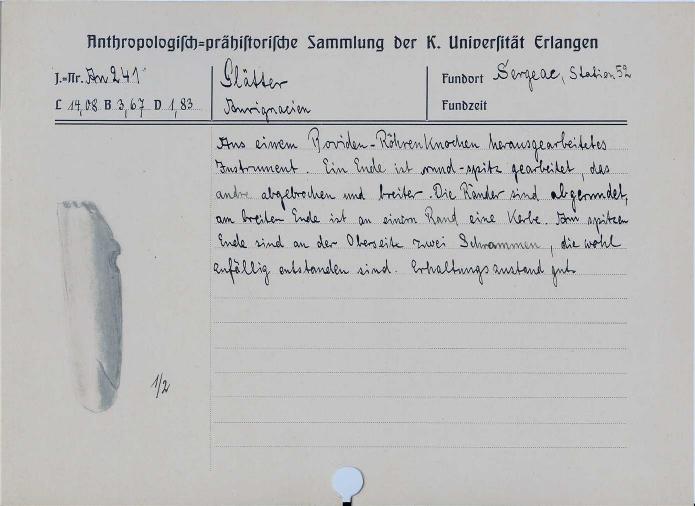 Anthropologisch=prähistorische Sammlung der K. Universität Erlangen
J.=Nr. An 241
Glätter
Fundort Sergeac, Station 52
L 14,08 B 3,67 D 1,83
Aurignacien
Fundzeit
Aus einem Boviden-Röhrenknochen herausgearbeitetes
Instrument. Ein Ende ist rund-spitz gearbeitet, das
andre abgebrochen und breiter. Die Ränder sind abgerundet,
am breiten Ende ist an einem Rand eine Kerbe. Am spitzen
Ende sind an der Oberseite zwei Schrammen, die wohl
zufällig entstanden sind. Erhaltungszustand gut
1/2